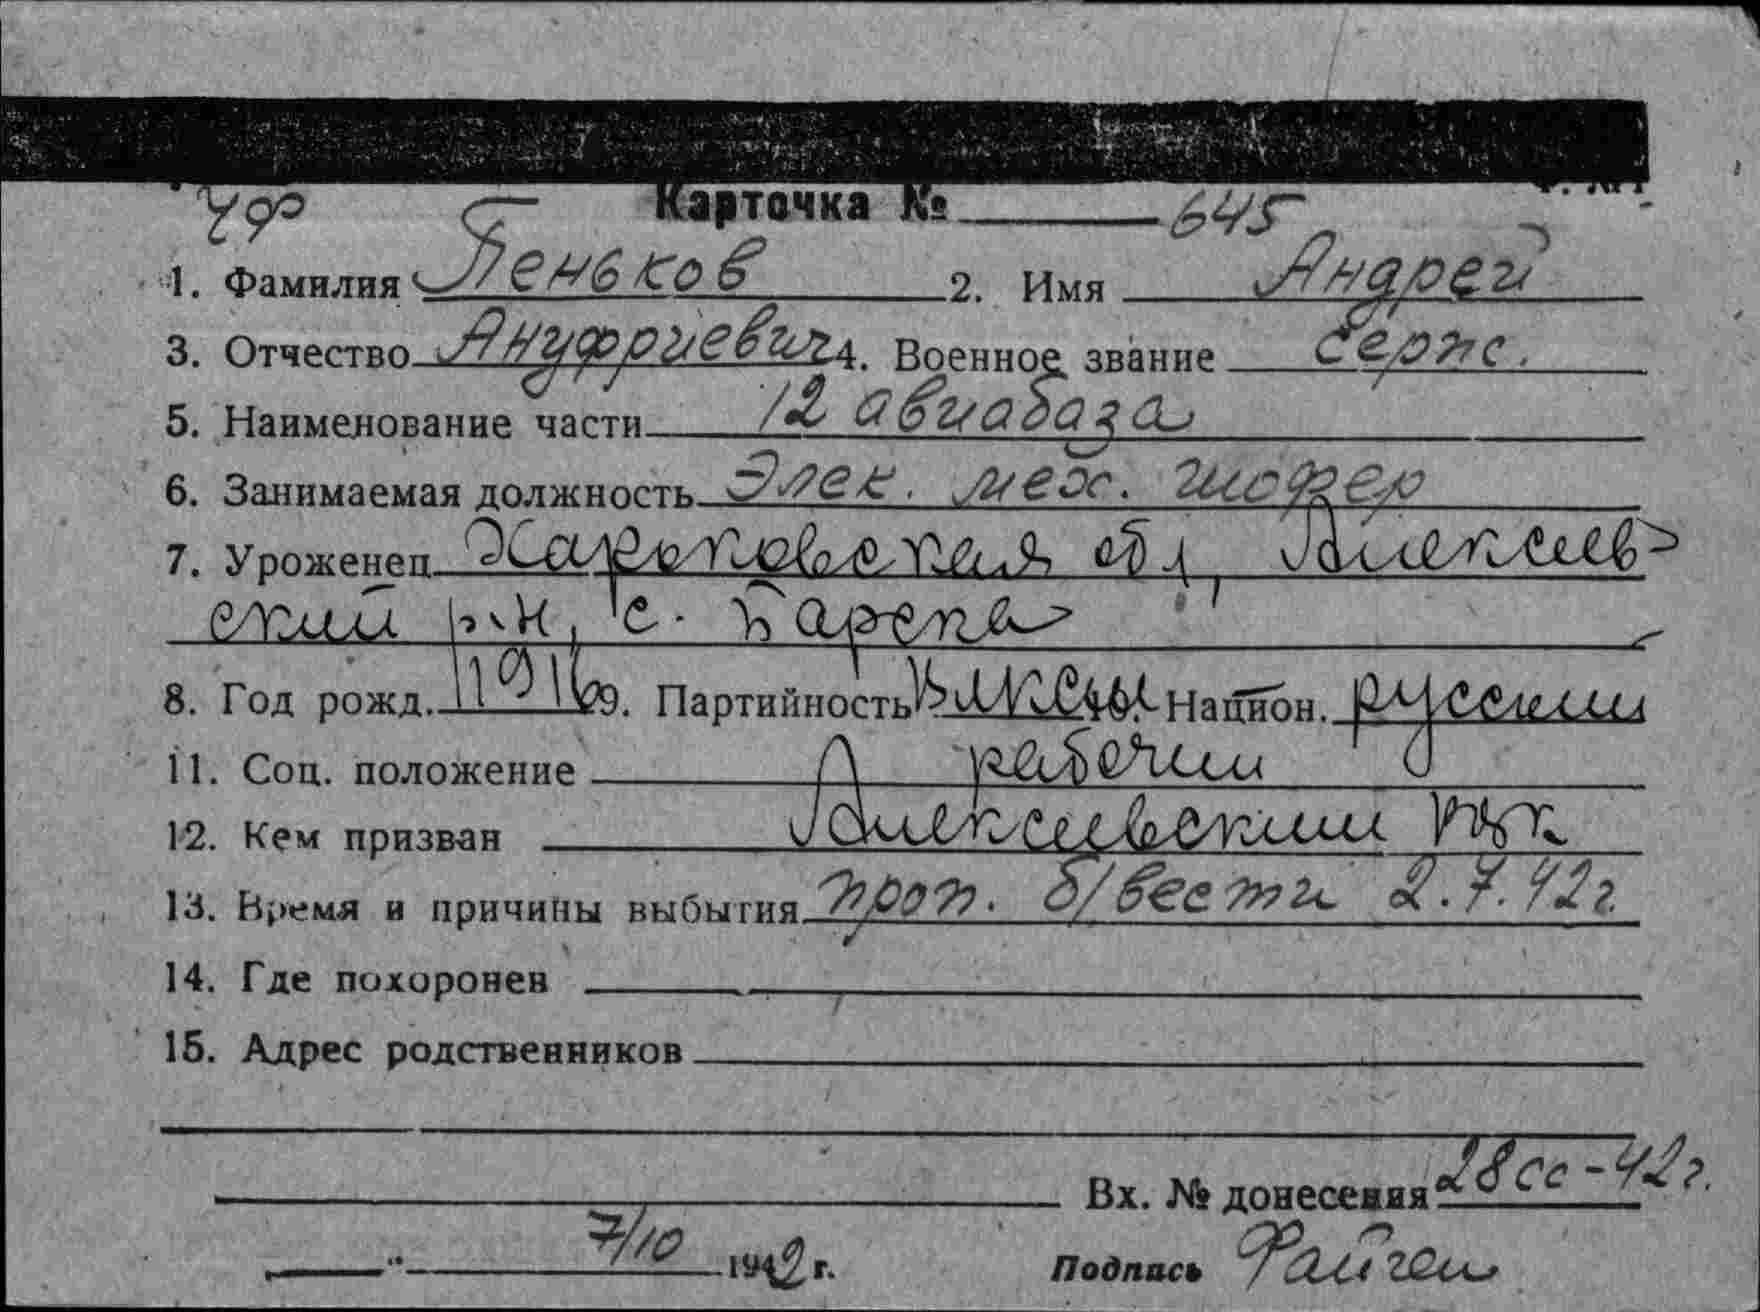 ЧФ Карточка № 645
1. Фамилия Пеньков 2. Имя Андрей
3. Отчество Ануфриевич 4. Военное звание Серж.
5. Наименование части 12 авиабаза
6. Занимаемая должность Элек. мех. шофер
7. Уроженец Харьковская обл, Алексеев
ский р-н, с.
8. Год рожд. 1916 9. Партийность ВЛКСМ Национ. русский
11. Соц. положение рабочий
12. Кем призван Алексеевский РВК
13. Время и причины выбытия проп. б/вести 2.7.42г.
14. Где похоронен
15. Адрес родственников
Вх. № донесения 28сс-42г.
" 7/10 1942 г. Подпись